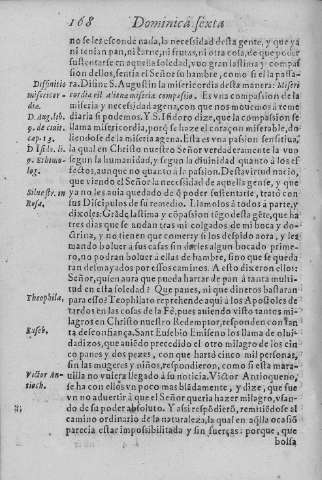 168 Dominica sexta
no se les esconde nada, la necesidad desta gente, y que ya
ni tenian pan, ni carne, ni frutas, ni otra cosa, de que poder
sustentarse en aquella soledad, vuo gran lastima y compas
sion dellos, sentia el Señor su hambre, como si el la passa-
Diffinitio ra. Difine S. Augustin la misericordia desta manera: Miseri
misericor- cordia est alienæ miseriæ compassio. Es vna compassion de la
diæ. miseria y necesidad agena, con que nos mouemos à reme
D. Aug. lib. diarla si podemos. Y S. Isidoro dize, que la compassion se
9. de ciuit. llama misericordia, porq̃ se haze el coraçon miserable, do
cap. 5. liendose de la miseria agena. Esta es vna passion sensitiua,
D. Isido. li. la qual en Christo nuestro Señor verdaderamente la vuo
segun la humanidad, y segun la diuinidad quanto à los ef
fectos, aunque no quanto à la passion. Desta virtud nacio,
que viendo el Señor la necesidad de aquella gente, y que
ya no les auia quedado de q̃ poder sustentarse, tratò con
sus Discipulos de su remedio. Llamolos à todos a parte, y
dixoles: Grãde lastima y cõpassion tẽgo desta gẽte, que ha
tres dias que se andan tras mi colgados de mi boca y do-
ctrina, y no tienen que comer: y si los despido aora, y les
mando boluer à sus casas sin darles algun bocado prime-
ro, no podran boluer à ellas de hambre, sino que se queda
ran desmayados por essos caminos. A esto dixeron ellos:
Señor, quien aura que pueda hartar de pan à tanta multi-
tud en esta soledad? Que panes, ni que dineros bastaran
Theophila. para esso? Teophilato reprehende aqui à los Apostoles de
tardos en las cosas de la Fè, pues auiendo visto tantos mi-
lagros en Christo nuestro Redemptor, responden con tan
Euseb. ta desconfiança. Sant Eusebio Emiseno los llama de olui-
dadizos, que auiẽdo precedido el otro milagro de los cin
co panes y dos pezes, con que hartò cinco mil personas,
sin las mugeres y niños, respondieron, como si esta mara-
Victor An- uilla no vuiera llegado à su noticia. Victor Antioqueno,
tioch. se ha con ellos vn poco mas blãdamente, y dize, que fue
vn no aduertir à que el Señor queria hazer milagro, vsan-
do de su poder absoluto. Y assi respõdierõ, remitiẽdose al
camino ordinario de la naturaleza, la qual en aq̃lla ocasiõ
parecia estar impossibilitada y sin fuerças: porque, que
bolsa